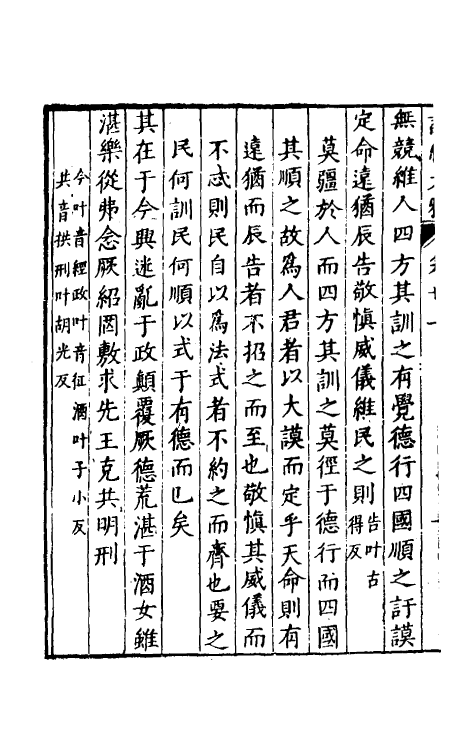 無競維人四方其訓之有覺德行四國順之訏謨
定命遠猶辰告敬慎威儀維民之則告叶古
得反
莫疆於人而四方其訓之莫徑于德行而四國
其順之故為人君者以大謨而定乎天命則有
遠猶而辰告者不招之而至也敬慎其威儀而
不忒則民自以為法式者不約之而齊也要之
民何訓民何順以式于有德而已矣
其在于今興迷亂于政顛覆厥德荒湛于酒女雖
湛樂從弗念厥紹罔敷求先王克共明刑
今叶音經政叶音征酒叶子小反
共音拱刑叶胡光反